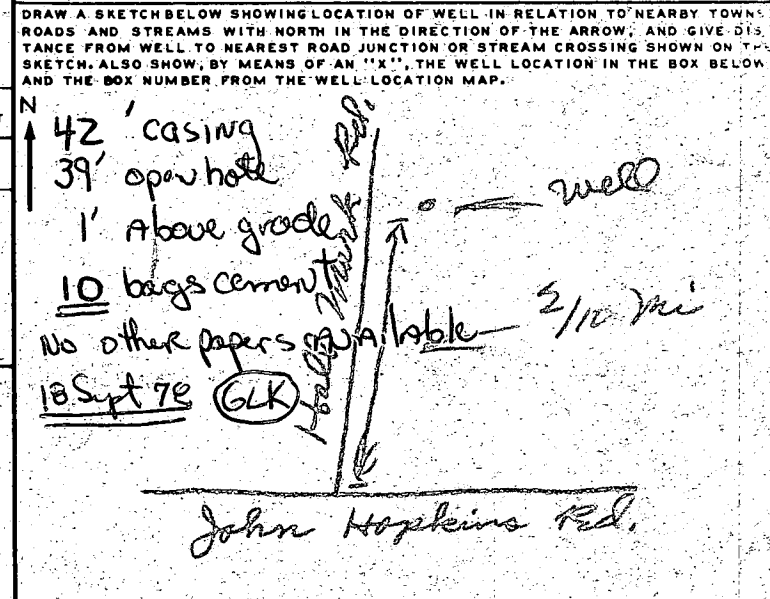 DRAW A SKETCH BELOW SHOWING LOCATION OF WELL IN RELATION TO NEARBY TOWNS
ROADS AND STREAMS WITH NORTH IN THE DIRECTION OF THE ARROW, AND GIVE DIS
TANCE FROM WELL TO NEAREST ROAD JUNCTION OR STREAM CROSSING SHOWN ON THE
SKETCH. ALSO SHOW, BY MEANS OF AN "X", THE WELL LOCATION IN THE BOX BELOW
AND THE BOX NUMBER FROM THE WELL LOCATION MAP.
N
42' casing
39' open hole
1' Above grade
10 bags cement
No other papers available
18 Sept 78 GLK
Rd.
Well
2/10 mi
John Hopkins Rd.